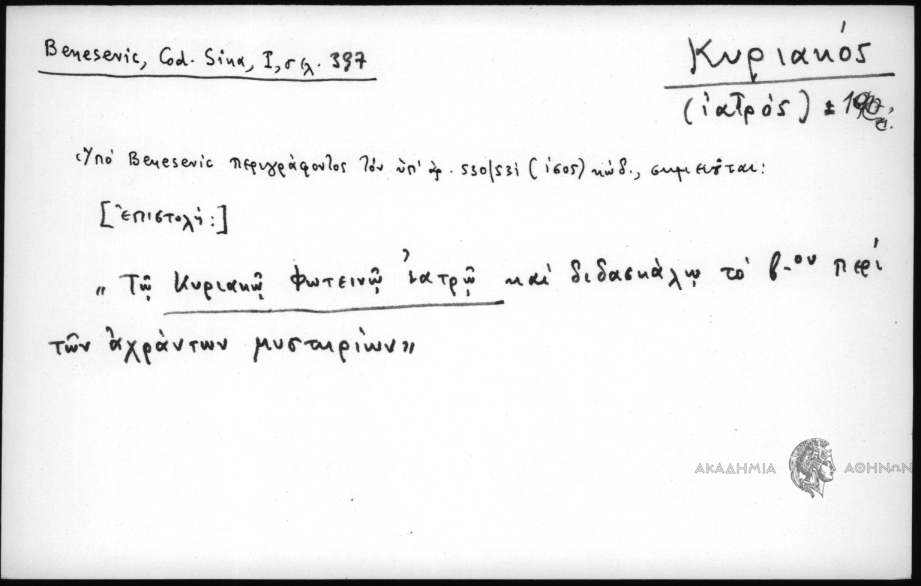 Benesevic, Cod. Sina, I, σελ. 397
Κυριακός
(ἰατρός) ± 19
Ὑπό Benesevic περιγράφοντος τόν ὑπ' ἀρ. 530/531 (ἰσος) κώδ., σημειοῦται:
[Ἐπιστολή:]
„ Τῷ Κυριακῷ φωτεινῷ ἰατρῷ καί διδασκάλῳ τό β-ον περί
τῶν ἀχράντων μυστηρίων"
ΑΚΑΔΗΜΙΑ ΑΘΗΝΩΝ